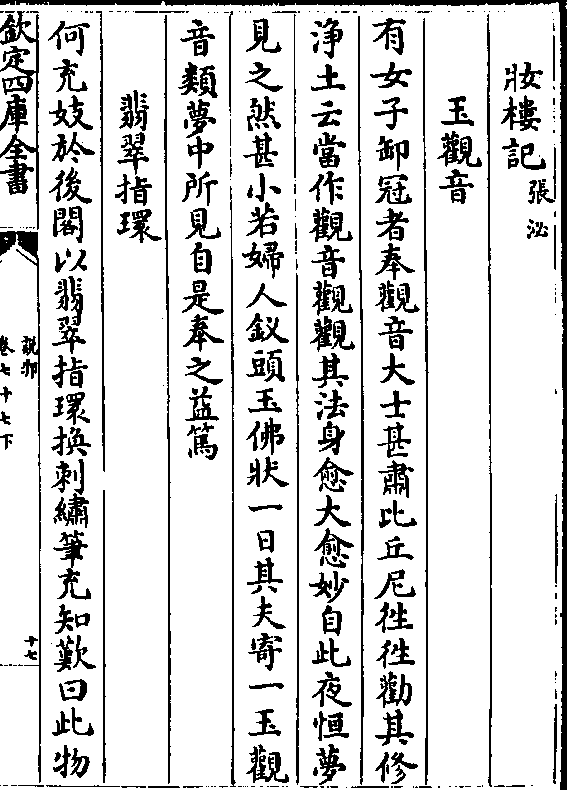 妝樓記張泌
玉觀音
有女子卸冠者奉觀音大士甚肅比丘尼徃徃勸其修
浄土云當作觀音觀觀其法身愈大愈妙自此夜恒夢
見之然甚小若婦人釵頭玉佛狀一日其夫寄一玉觀
音類夢中所見自是奉之益篤
翡翠指環
何充妓於後閣以翡翠指環換刺繡筆充知歎曰此物
欽定四庫全書
說郛
卷七十七下
十七